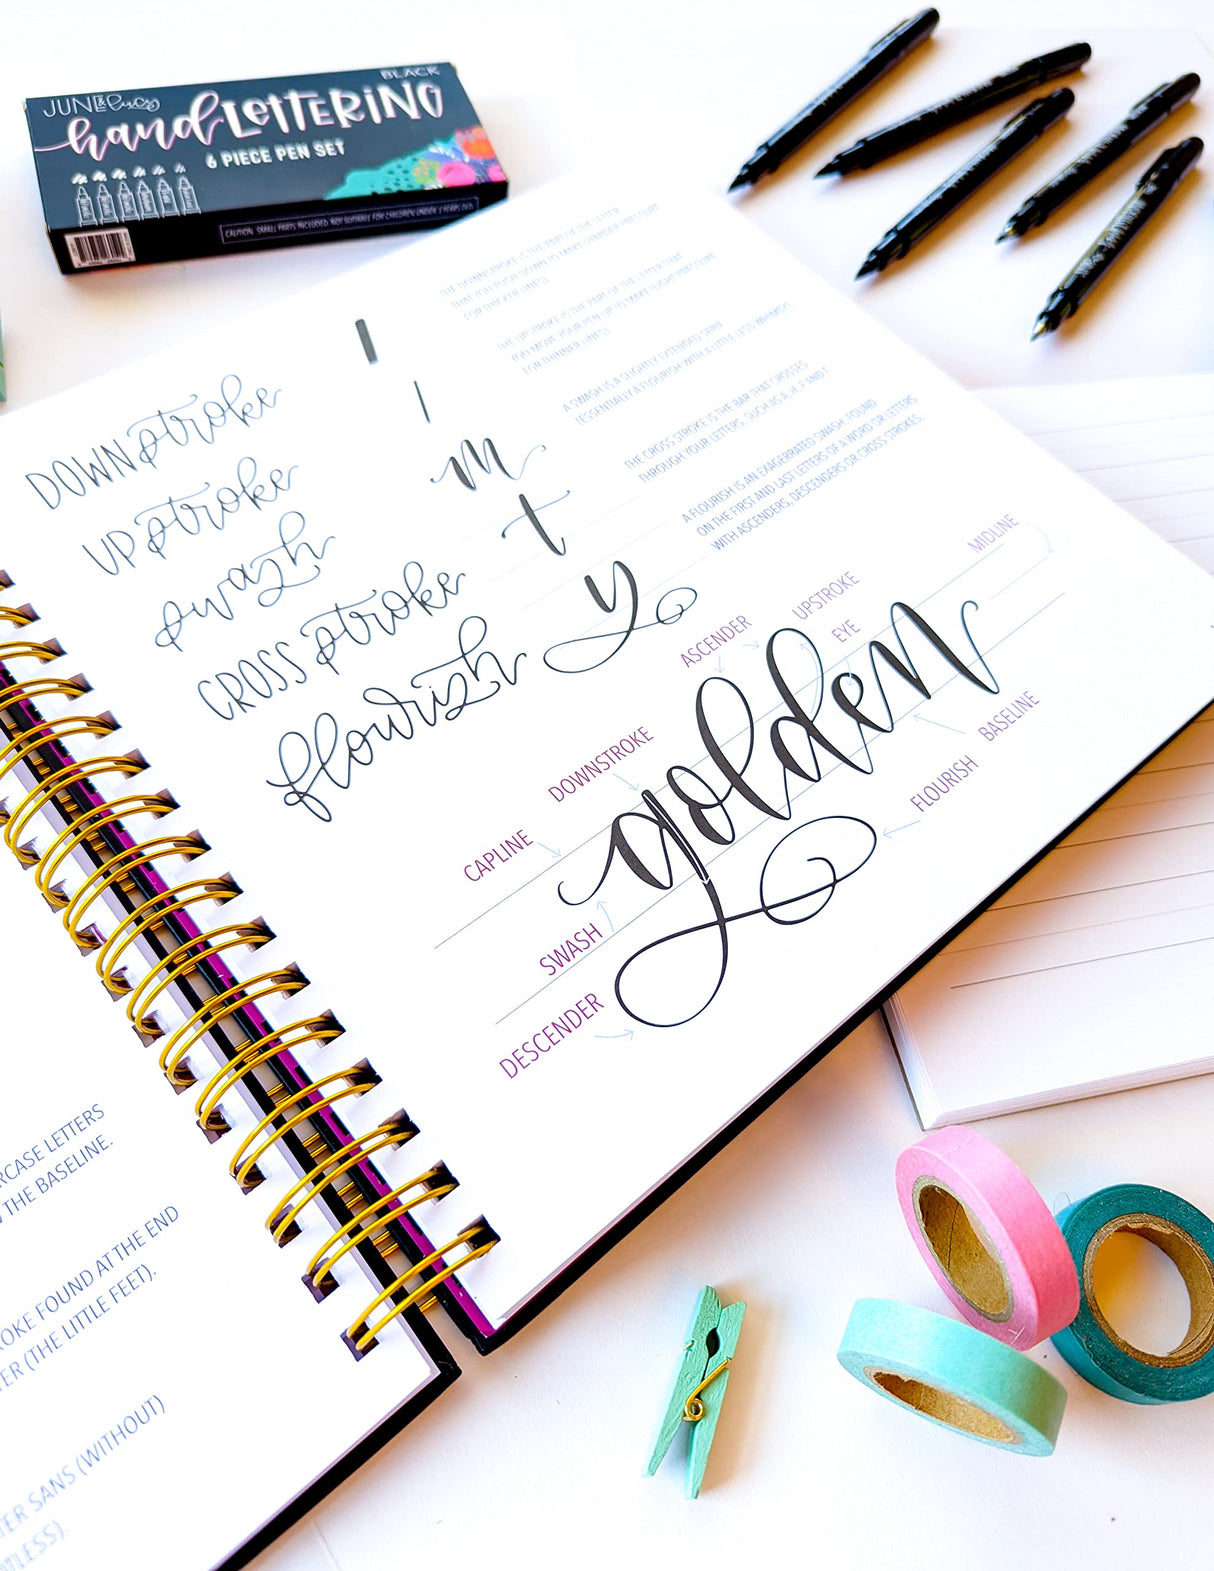 BLACK
JUNE & lucy
hand LETTERING
6 PIECE PEN SET
CAUTION: SMALL PARTS INCLUDED. NOT SUITABLE FOR CHILDREN UNDER 3 YEARS OLD.
DOWNstroke
THE DOWNSTROKE IS THE PART OF THE LETTER
THAT YOU PUSH DOWN TO MAKE (HARDER PRESSURE
FOR THICKER LINES)
UPstroke
THE UPSTROKE IS THE PART OF THE LETTER THAT
YOU MOVE YOUR PEN UP TO MAKE (LIGHT PRESSURE
FOR THINNER LINES)
swash
m
A SWASH IS A SLIGHTLY EXTENDED SERIF
(ESSENTIALLY A FLOURISH WITH A LITTLE LESS WHIMSY)
CROSS stroke
t
THE CROSS STROKE IS THE BAR THAT CROSSES
THROUGH YOUR LETTERS, SUCH AS A, H, F AND T
flourish
y
A FLOURISH IS AN EXAGERRATED SWASH, FOUND
ON THE FIRST AND LAST LETTERS OF A WORD, OR LETTERS
WITH ASCENDERS, DESCENDERS OR CROSS STROKES
MIDLINE
UPSTROKE
EYE
ASCENDER
DOWNSTROKE
CAPLINE
golden
BASELINE
FLOURISH
SWASH
DESCENDER
LETTERS
THE BASELINE.
FOUND AT THE END
(THE LITTLE FEET).
SANS (WITHOUT)